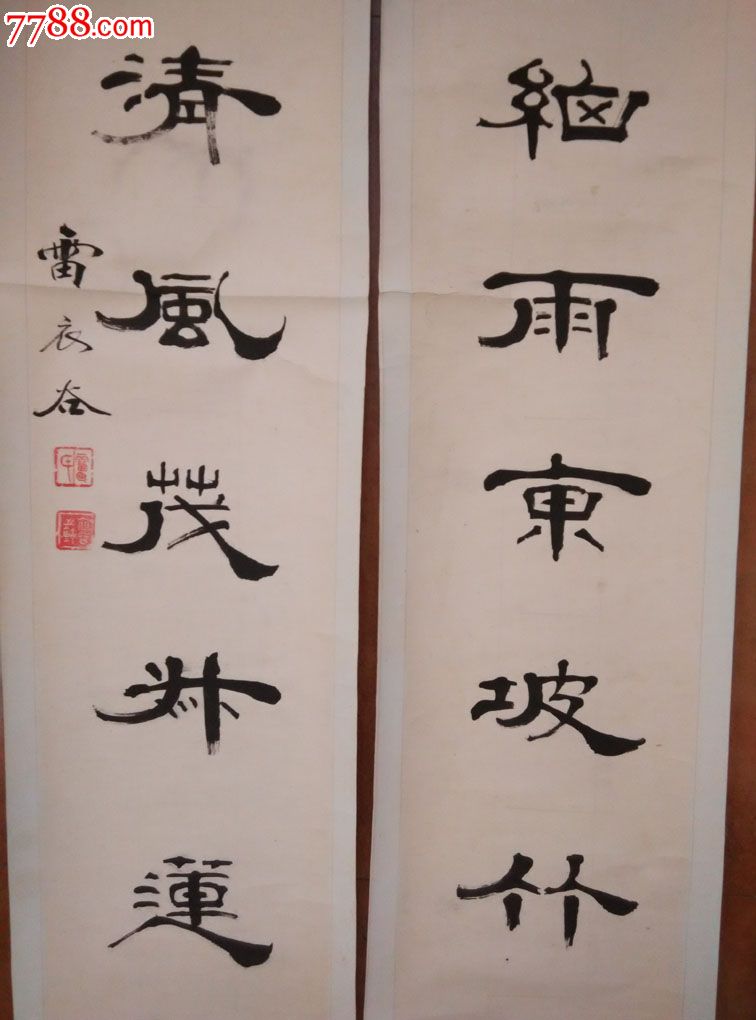 7788.com
細雨東坡竹
清風茂叔蓮
雷衣